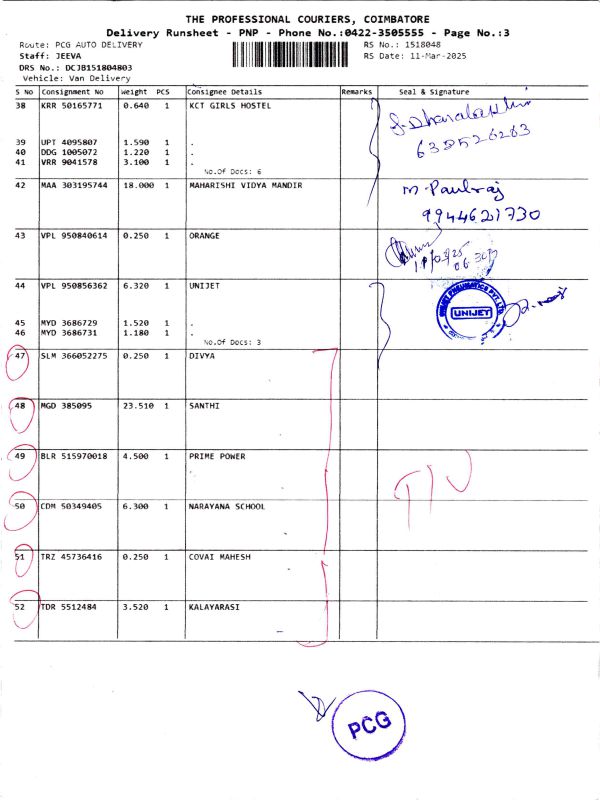 THE PROFESSIONAL COURIERS, COIMBATORE
Delivery Runsheet - PNP - Phone No.:0422-3505555 - Page No.:3
Route: PCG AUTO DELIVERY RS No.: 1518048
Staff: JEEVA RS Date: 11-Mar-2025
DRS No.: DCJB151804803
Vehicle: Van Delivery
S No Consignment No Weight PCS Consignee Details Remarks Seal & Signature
38 KRR 50165771 0.640 1 KCT GIRLS HOSTEL
39 UPT 4095807 1.590 1 .
40 DDG 1005072 1.220 1 .
41 VRR 9041578 3.100 1 .
No.Of Docs: 6
42 MAA 303195744 18.000 1 MAHARISHI VIDYA MANDIR M Paulraj
9944621730
43 VPL 950840614 0.250 1 ORANGE
44 VPL 950856362 6.320 1 UNIJET UNIJET
45 MYD 3686729 1.520 1 .
46 MYD 3686731 1.180 1 .
No.Of Docs: 3
47 SLM 366052275 0.250 1 DIVYA
48 MGD 385095 23.510 1 SANTHI
49 BLR 515970018 4.500 1 PRIME POWER
50 CDM 50349405 6.300 1 NARAYANA SCHOOL
51 TRZ 45736416 0.250 1 COVAI MAHESH
52 TDR 5512484 3.520 1 KALAYARASI
PCG